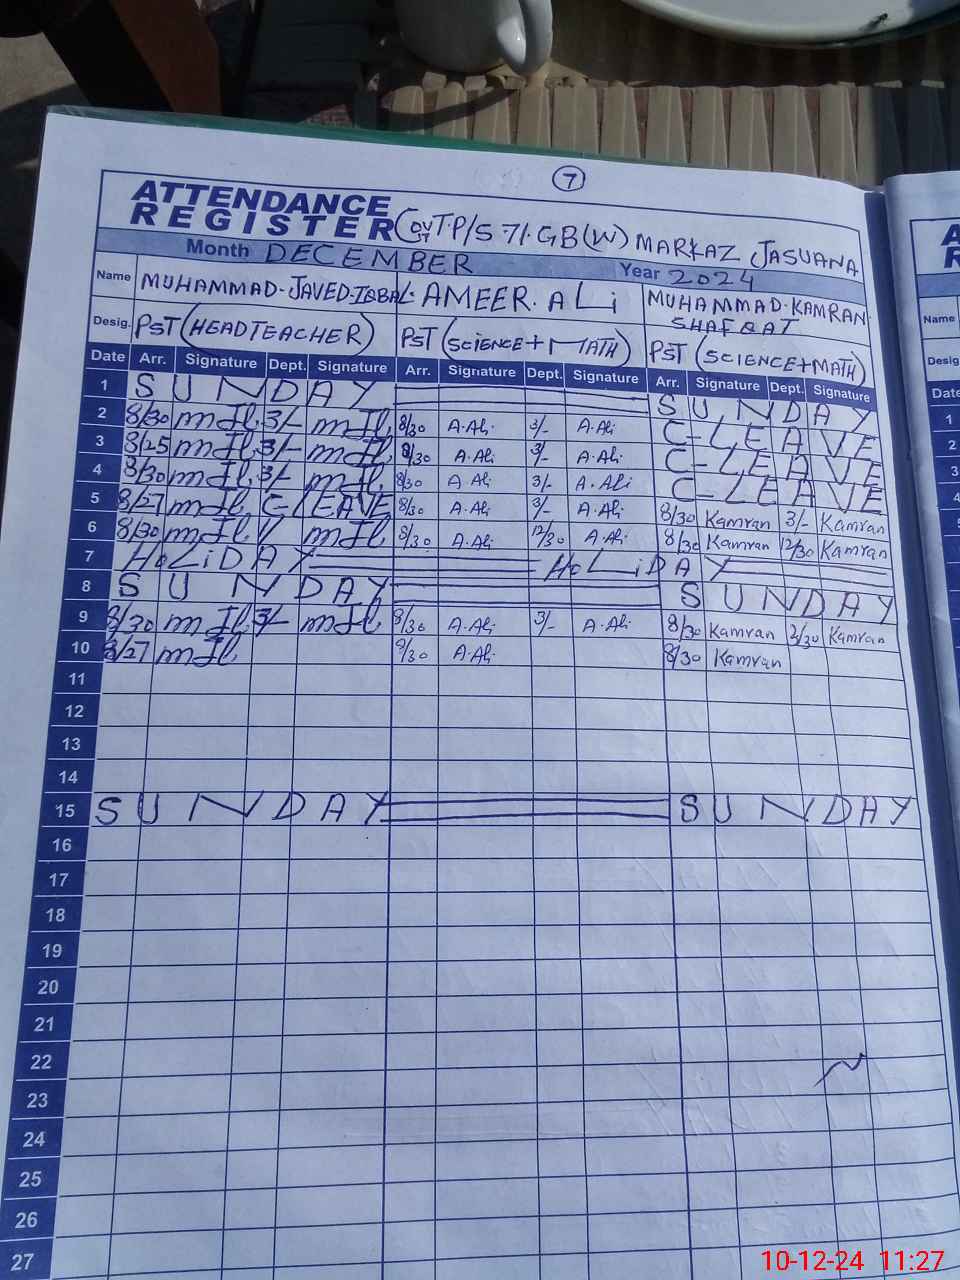 7
ATTENDANCE
REGISTER GOVT.P/S 71.GB(W) MARKAZ JASUANA
Month DECEMBER Year 2024
Name MUHAMMAD-JAVED-IQBAL. AMEER.ALi MUHAMMAD-KAMRAN-
SHAFQAT
Desig. PST (HEADTEACHER) PST (SCIENCE+MATH) PST (SCIENCE+MATH)
Date Arr. Signature Dept. Signature Arr. Signature Dept. Signature Arr. Signature Dept. Signature
1 SUNDAY SUNDAY
2 8/30 mJI 3/- mJI 8/30 A.Ali 3/- A.Ali C-LEAVE
3 8/25 mJI 3/- mJI 8/30 A.Ali 3/- A.Ali C-LEAVE
4 8/30 mJI 3/- mJI 8/30 A.Ali 3/- A.Ali C-LEAVE
5 8/27 mJI C-LEAVE 8/30 A.Ali 3/- A.Ali 8/30 Kamran 3/- Kamran
6 8/30 mJI // mJI 8/30 A.Ali 12/30 A.Ali 8/30 Kamran 12/30 Kamran
7 HoLiDAY HoLiDAY
8 SUNDAY SUNDAY
9 8/30 mJI 3/- mJI 8/30 A.Ali 3/- A.Ali 8/30 Kamran Kamran
10 8/27 mJI 8/30 A.Ali 8/30 Kamran
11
12
13
14
15 SUNDAY SUNDAY
16
17
18
19
20
21
22
23
24
25
26
27
A
R
Name
Desig
Date
1
2
3
4
10-12-24 11:27